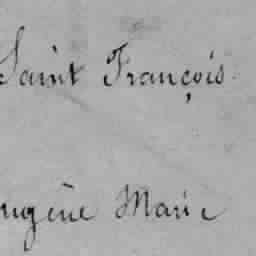 Saint François
ugène Marie